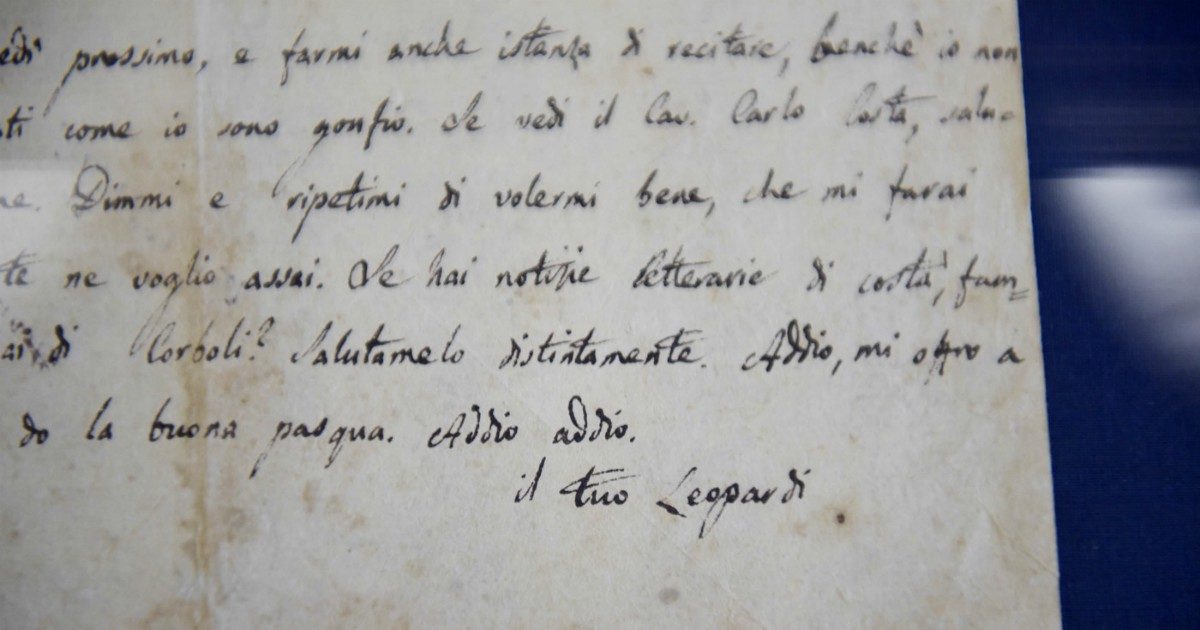 edì prossimo, e farmi anche istanza di recitare, benchè io non
ti come io sono gonfio. Se vedi il Cav. Carlo Costa, salu=
ne. Dimmi e ripetimi di volermi bene, che mi farai
te ne voglio assai. Se hai notizie letterarie di costà, fam=
ai di Corboli? Salutamelo distintamente. Addio, mi offro a
do la buona pasqua. Addio addio.
il tuo Leopardi